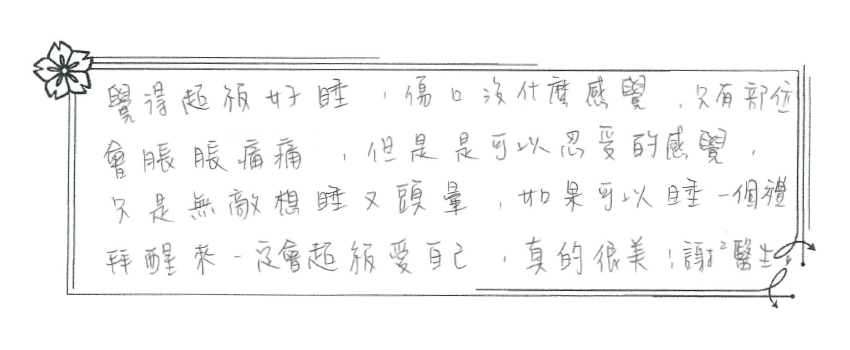 覺得超級好睡，傷口沒什麼感覺，只有部位
會脹脹痛痛，但是是可以忍受的感覺，
只是無敵想睡又頭暈，如果可以睡一個禮
拜醒來一定會超級愛自己，真的很美！謝²醫生！